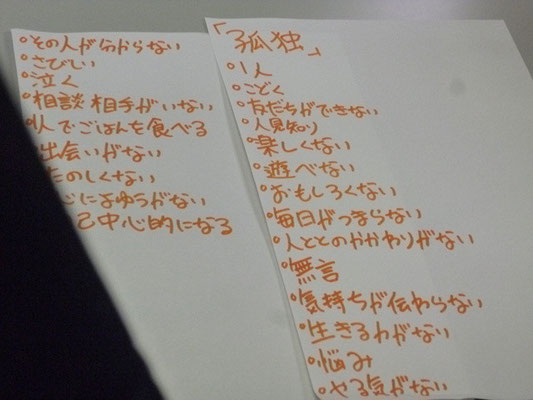 「孤独」
°1人
°こどく
°友だちができない
°人見知り
°楽しくない
°遊べない
°おもしろくない
°毎日がつまらない
°人ととのかかわりがない
°無言
°気持ちが伝わらない
°生きるわがない
°悩み
°やる気がない
°その人が分からない
°さびしい
°泣く
°相談相手がいない
人でごはんを食べる
出会いがない
のしくない
によゆうがない
己中心的になる